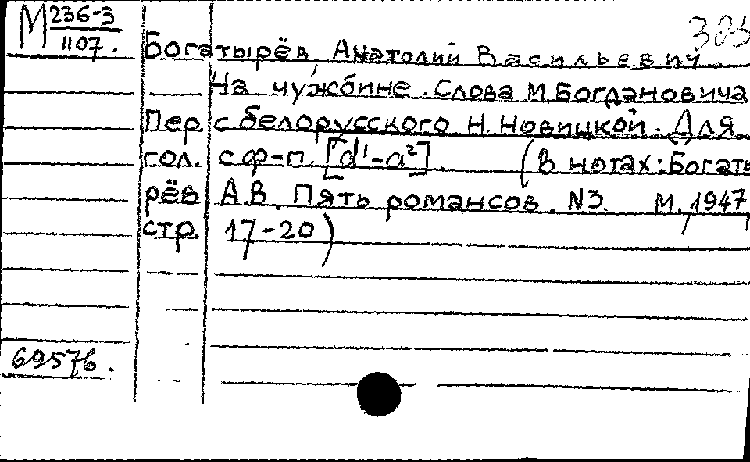 М 236-3
1107.
Богатырёв, Анатолий Васильевич.
На чужбине. Слова М. Богдановича
Пер. с белорусского Н. Новицкой. Для
гол. с ф-п. [d¹-a²]. (В нотах: Богаты
рёв А.В. Пять романсов. №3. М., 1947,
стр. 17-20)